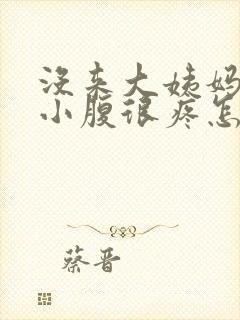 没来大姨妈
小腹很疼怎
蔡晋